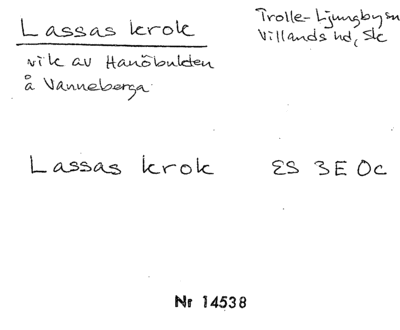 Lassas krok
Trolle-Ljungby sn
Villands hd, Sk
vik av Hanöbukten
å Vanneberga
Lassas krok
ES 3E 0c
Nr 14538